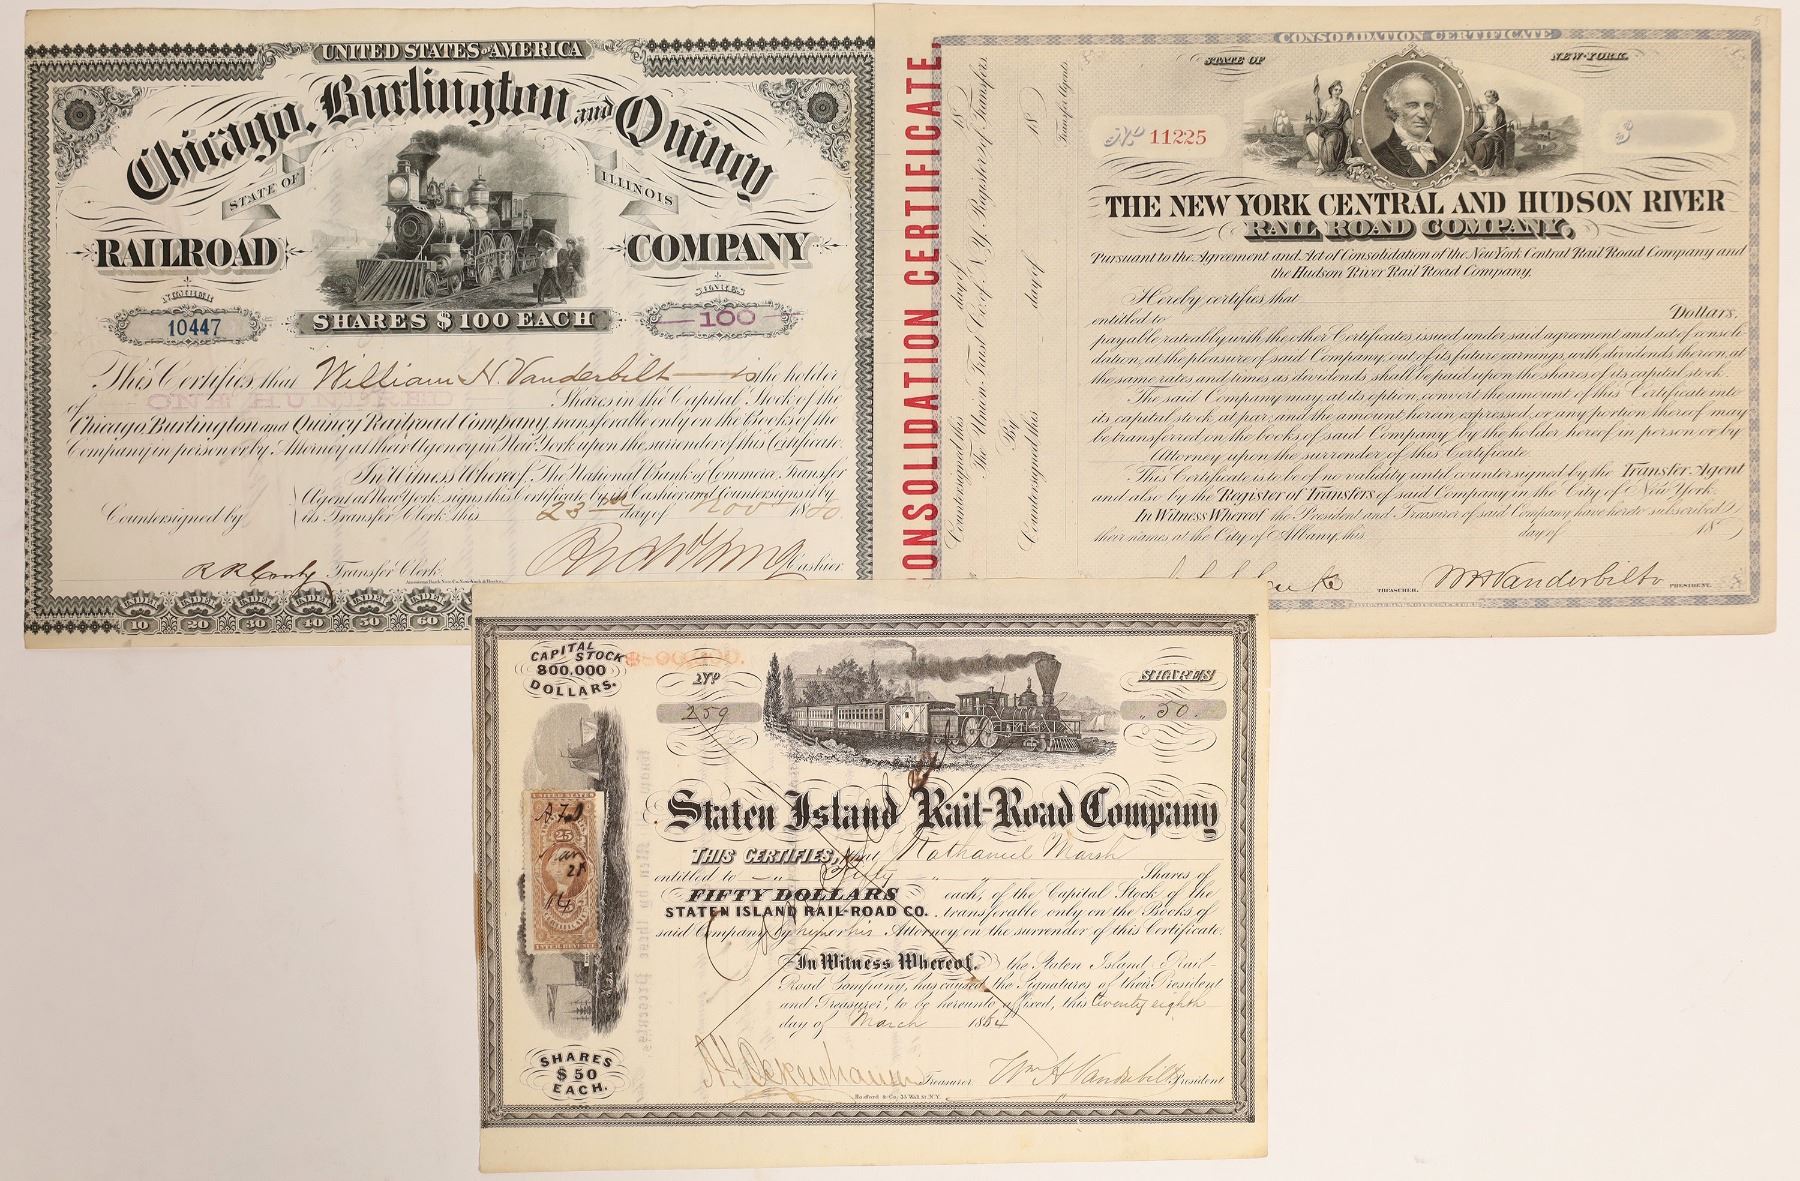 UNITED STATES OF AMERICA
Chicago, Burlington and Quincy
STATE OF ILLINOIS
RAILROAD COMPANY
NUMBER
10447
SHARES $100 EACH
SHARES
100
This Certifies that William H. Vanderbilt is the holder
of ONE HUNDRED Shares in the Capital Stock of the
Chicago Burlington and Quincy Railroad Company, transferable only on the Books of the
Company in person or by Attorney at their Agency in New York upon the surrender of this Certificate.
In Witness Whereof, The National Bank of Commerce, Transfer
Agent at New York, signs this Certificate by its Cashier and Countersigns it by
its Transfer Clerk this 23rd day of Nov 1880.
Countersigned by
Transfer Clerk. Cashier.
American Bank Note Co. New York &
UNDER 10 UNDER 20 UNDER 30 UNDER 40 UNDER 50 UNDER 60
CONSOLIDATION CERTIFICATE
CONSOLIDATION CERTIFICATE.
Countersigned this day of 18
The Union Trust Co. of N.Y. Registers of Transfers
By
Countersigned this day of 18
Transfer Agents.
STATE OF NEW-YORK.
No 11225
$
THE NEW YORK CENTRAL AND HUDSON RIVER
RAIL ROAD COMPANY,
Pursuant to the Agreement and Act of Consolidation of the New York Central Rail Road Company and
the Hudson River Rail Road Company,
Hereby certifies that
entitled to Dollars,
payable rateably with the other Certificates issued under said agreement and act of consoli-
dation, at the pleasure of said Company, out of its future earnings, with dividends thereon, at
the same rates and times as dividends shall be paid upon the shares of its capital stock.
The said Company may at its option, convert the amount of this Certificate into
its capital stock, at par, and the amount herein expressed, or any portion thereof may
be transferred on the books of said Company, by the holder hereof in person or by
Attorney upon the surrender of this Certificate.
This Certificate is to be of no validity until countersigned by the Transfer Agent
and also by the Register of Transfers of said Company in the City of New York.
In Witness Whereof the President and Treasurer of said Company, have hereto subscribed
their names at the City of Albany, this day of 18
TREASURER. WH Vanderbilt PRESIDENT.
CAPITAL STOCK
800.000
DOLLARS.
$800,000.
No
259
SHARES
50.
Staten Island Rail-Road Company
THIS CERTIFIES, that Nathaniel Marsh
entitled to Fifty Shares of
FIFTY DOLLARS each, of the Capital Stock of the
STATEN ISLAND RAIL-ROAD CO. transferable only on the Books of
said Company by him or his Attorney on the surrender of this Certificate.
In Witness Whereof, the Staten Island Rail-
Road Company, has caused the Signatures of their President
and Treasurer, to be hereunto affixed, this twenty eighth
day of March 1864
Treasurer Wm H Vanderbilt President
UNITED STATES
25
Mar
28
INTER. REVENUE
SHARES
$50
EACH.
33 Wall St. N.Y.